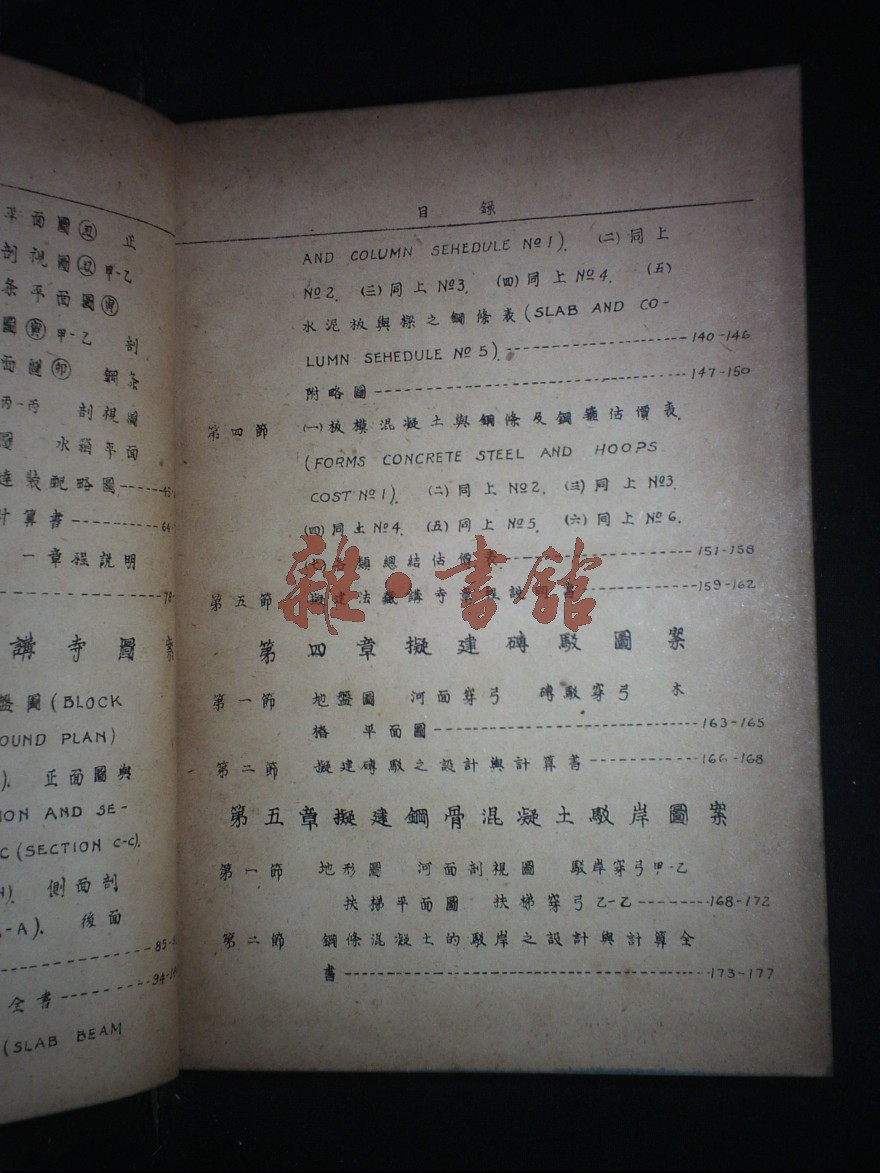 平面圖丑 正
剖視圖丑甲-乙
條平面圖寅
圖寅甲-乙 剖
面謎卯 鋼条
丙-丙 剖視圖
圖 水箱平面
達装配略圖
计算書 64
一章程説明
78
講寺圖案
盤圖(BLOCK
OUND PLAN)
正面圖與
ION AND SE-
C(SECTION C-C).
側面剖
A-A). 後面
85
全書 94-14
(SLAB BEAM
目錄
AND COLUMN SEHEDULE №1). (二)同上
№2. (三)同上№3. (四)同上№4. (五)
水泥板與樑之鋼條表(SLAB AND CO-
LUMN SEHEDULE №5). 140-146
附略圖 147-150
第四節 (一)板模混凝土與鋼條及鋼籀估價表.
(FORMS CONCRETE STEEL AND HOOPS
COST №1). (二)同上№2. (三)同上№3.
(四)同土№4. (五)同上№5. (六)同上№6.
類總結估價表 151-158
第五節 擬建法藏講寺章程説明書 159-162
雜·書館
第四章擬建磚駁圖案
第一節 地盤圖 河面穿弓 磚駁穿弓 木
樁 平面圖 163-165
第二節 擬建磚駁之設計與計算書 166-168
第五章擬建鋼骨混凝土駁岸圖案
第一節 地形圖 河面剖視圖 駁岸穿弓甲-乙
扶梯平面圖 扶梯穿弓乙-乙 168-172
第二節 鋼條混凝土的駁岸之設計與計算全
書 173-177